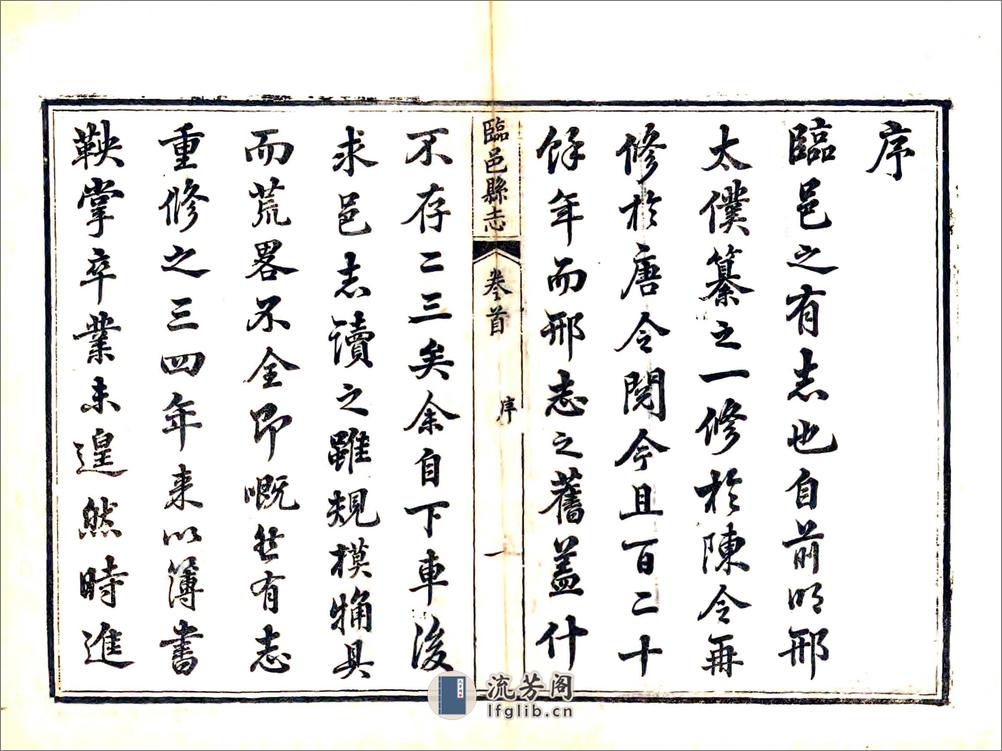 序
臨邑之有志也自前明邢
太僕纂之一修於陳令再
修於唐令閱今且百二十
餘年而邢志之舊蓋什
臨邑縣志
卷首
序
一
不存二三矣余自下車後
求邑志讀之雖規模犕具
而荒畧不全即嘅然有志
重修之三四年来以簿書
鞅掌卒業未遑然時進
流芳阁
lfglib.cn